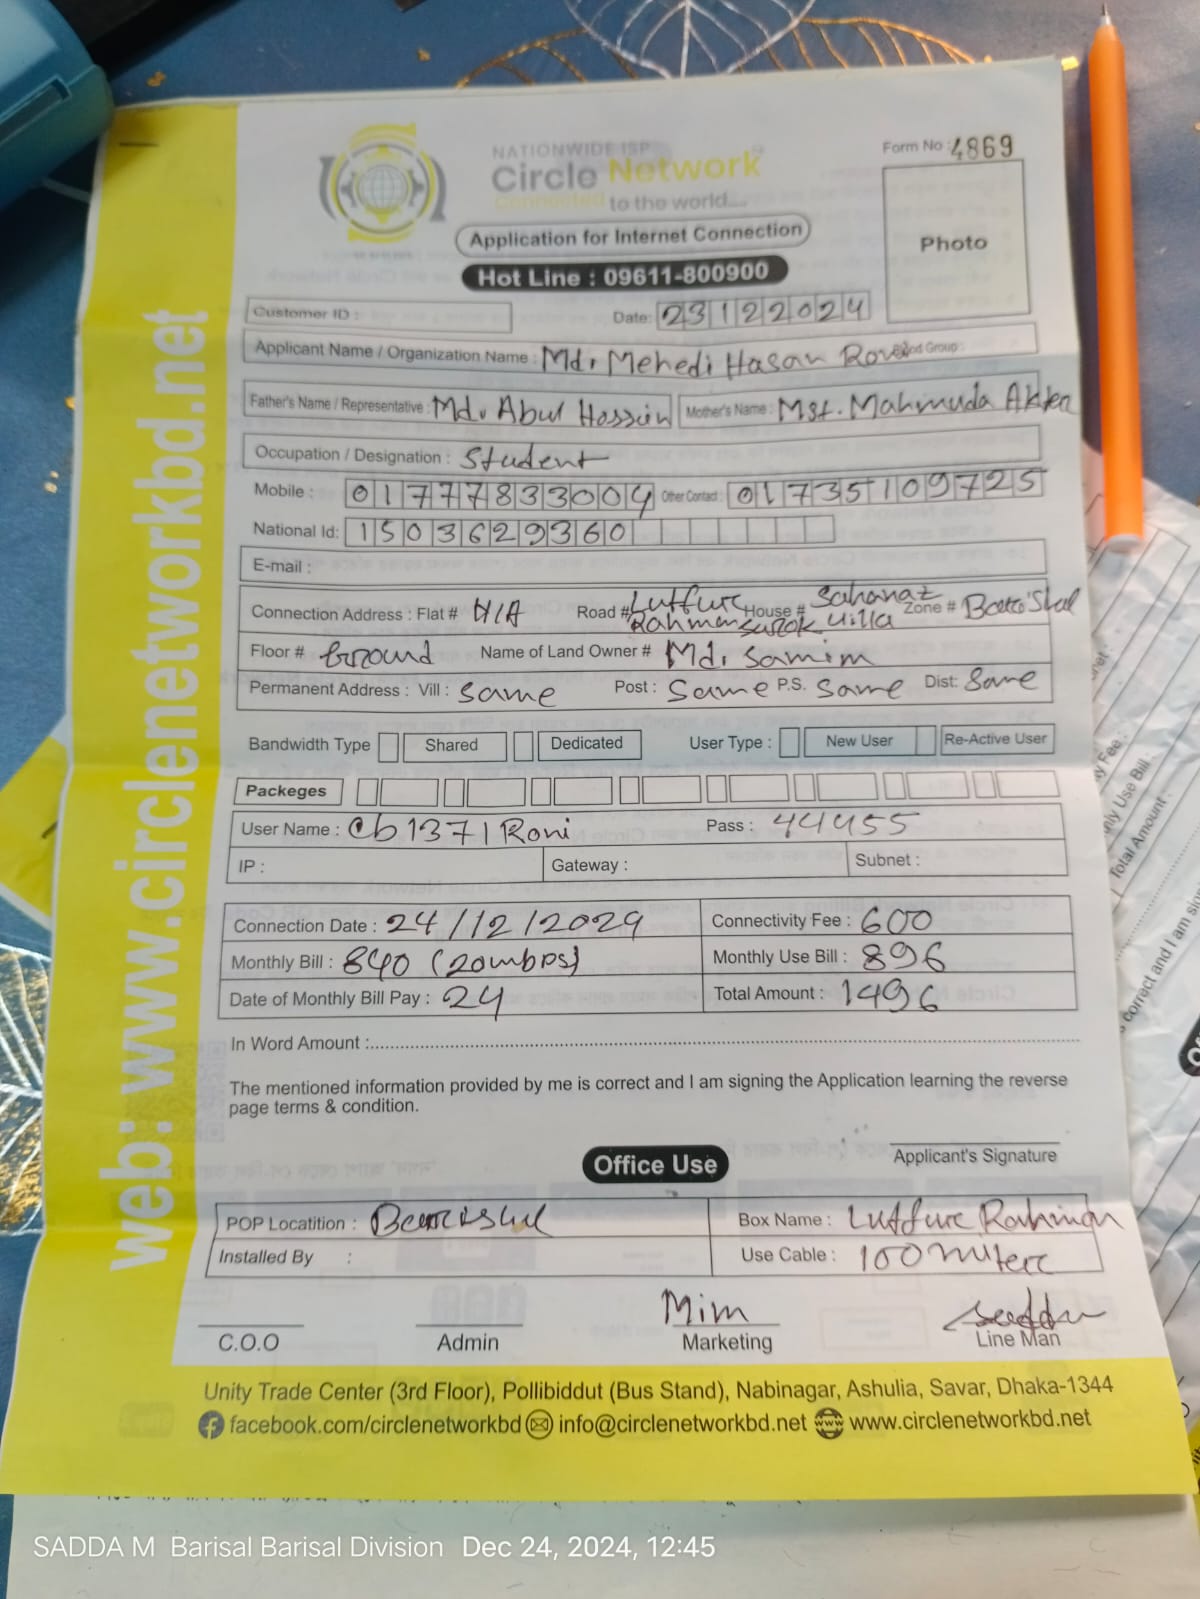 NATIONWIDE ISP
Circle Network
Connected to the world....
Form No : 4869
Application for Internet Connection
Photo
Hot Line : 09611-800900
Customer ID : Date: 23122024
Applicant Name / Organization Name : Md. Mehedi Hasan Blood Group :
Father's Name / Representative : Md. Abul Hossain Mother's Name : Mst. Mahmuda Akter
Occupation / Designation : Student
Mobile : 01777833004 Other Contact : 01735109725
National Id: 1503629360
E-mail :
Connection Address : Flat # N/A Road # Lutfur Rahman Sarok House # Sahanaz Villa Zone #
Floor # Ground Name of Land Owner # Md. Samim
Permanent Address : Vill : Same Post : Same P.S. Same Dist: Same
Bandwidth Type Shared Dedicated User Type : New User Re-Active User
Packeges
User Name : Pass : 44455
IP : Gateway : Subnet :
Connection Date : 24/12/2024 Connectivity Fee : 600
Monthly Bill : 840 (20mbps) Monthly Use Bill : 896
Date of Monthly Bill Pay : 24 Total Amount : 1496
In Word Amount :
The mentioned information provided by me is correct and I am signing the Application learning the reverse
page terms & condition.
Applicant's Signature
Office Use
POP Locatition : Box Name : Lutfur Rahman
Installed By : Use Cable : 100 miter
Mim
C.O.O Admin Marketing Line Man
Unity Trade Center (3rd Floor), Pollibiddut (Bus Stand), Nabinagar, Ashulia, Savar, Dhaka-1344
facebook.com/circlenetworkbd info@circlenetworkbd.net www.circlenetworkbd.net
web: www.circlenetworkbd.net
ly Use Bill
Total Amount :
correct and I am
SADDA M Barisal Barisal Division Dec 24, 2024, 12:45